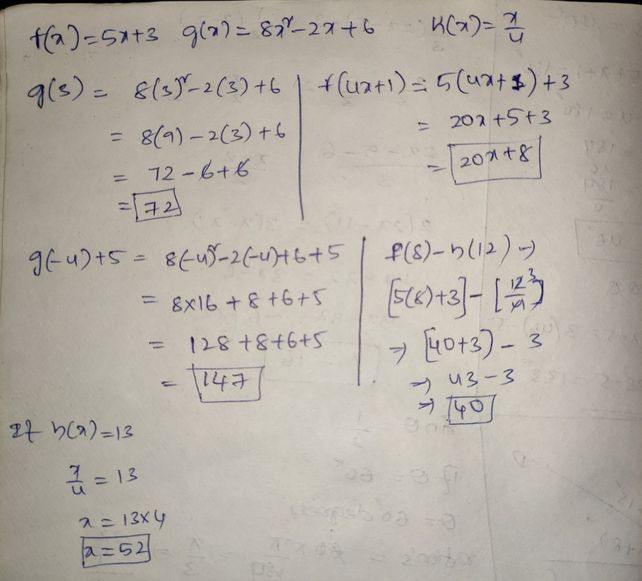 f(x) = 5x+3 g(x) = 8x²-2x+6 h(x) = x/4
g(3) = 8(3)²-2(3)+6
= 8(9)-2(3)+6
= 72-6+6
= 72
f(4x+1) = 5(4x+1)+3
= 20x+5+3
= 20x+8
g(-4)+5 = 8(-4)²-2(-4)+6+5
= 8×16+8+6+5
= 128+8+6+5
= 147
f(8)-h(12) →
[5(8)+3]-[12/4] 3
→ [40+3]-3
→ 43-3
→ 40
If h(x)=13
x/4 = 13
x = 13×4
x = 52